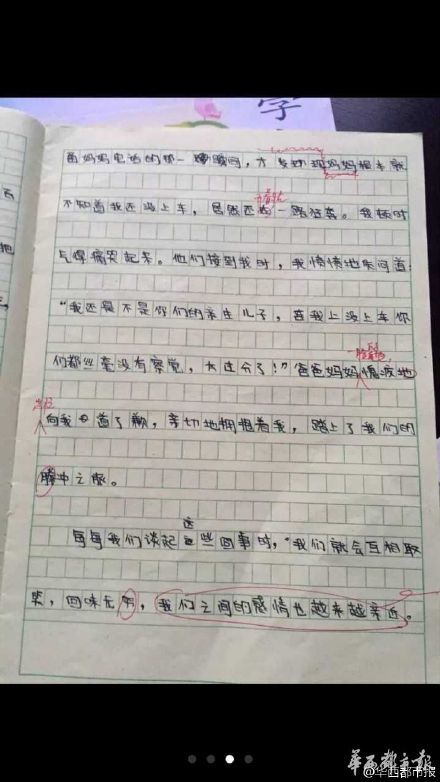 学
面妈妈电话的那一瞬间，才发现妈妈根本就
不知道我还没上车，居然还在一路狂奔。我顿时
气得痛哭起来。他们接到我时，我愤愤地质问道：
“我还是不是你们的亲生儿子，连我上没上车你
们都丝毫没有察觉，太过分了！”爸爸妈妈愧疚地
向我道了歉，亲切地拥抱着我，踏上了我们的
腾冲之旅。
每每我们谈起这些回事时，“我们就会互相取
笑，回味无穷，我们之间的感情也越来越亲近。
华西都市报
@华西都市报